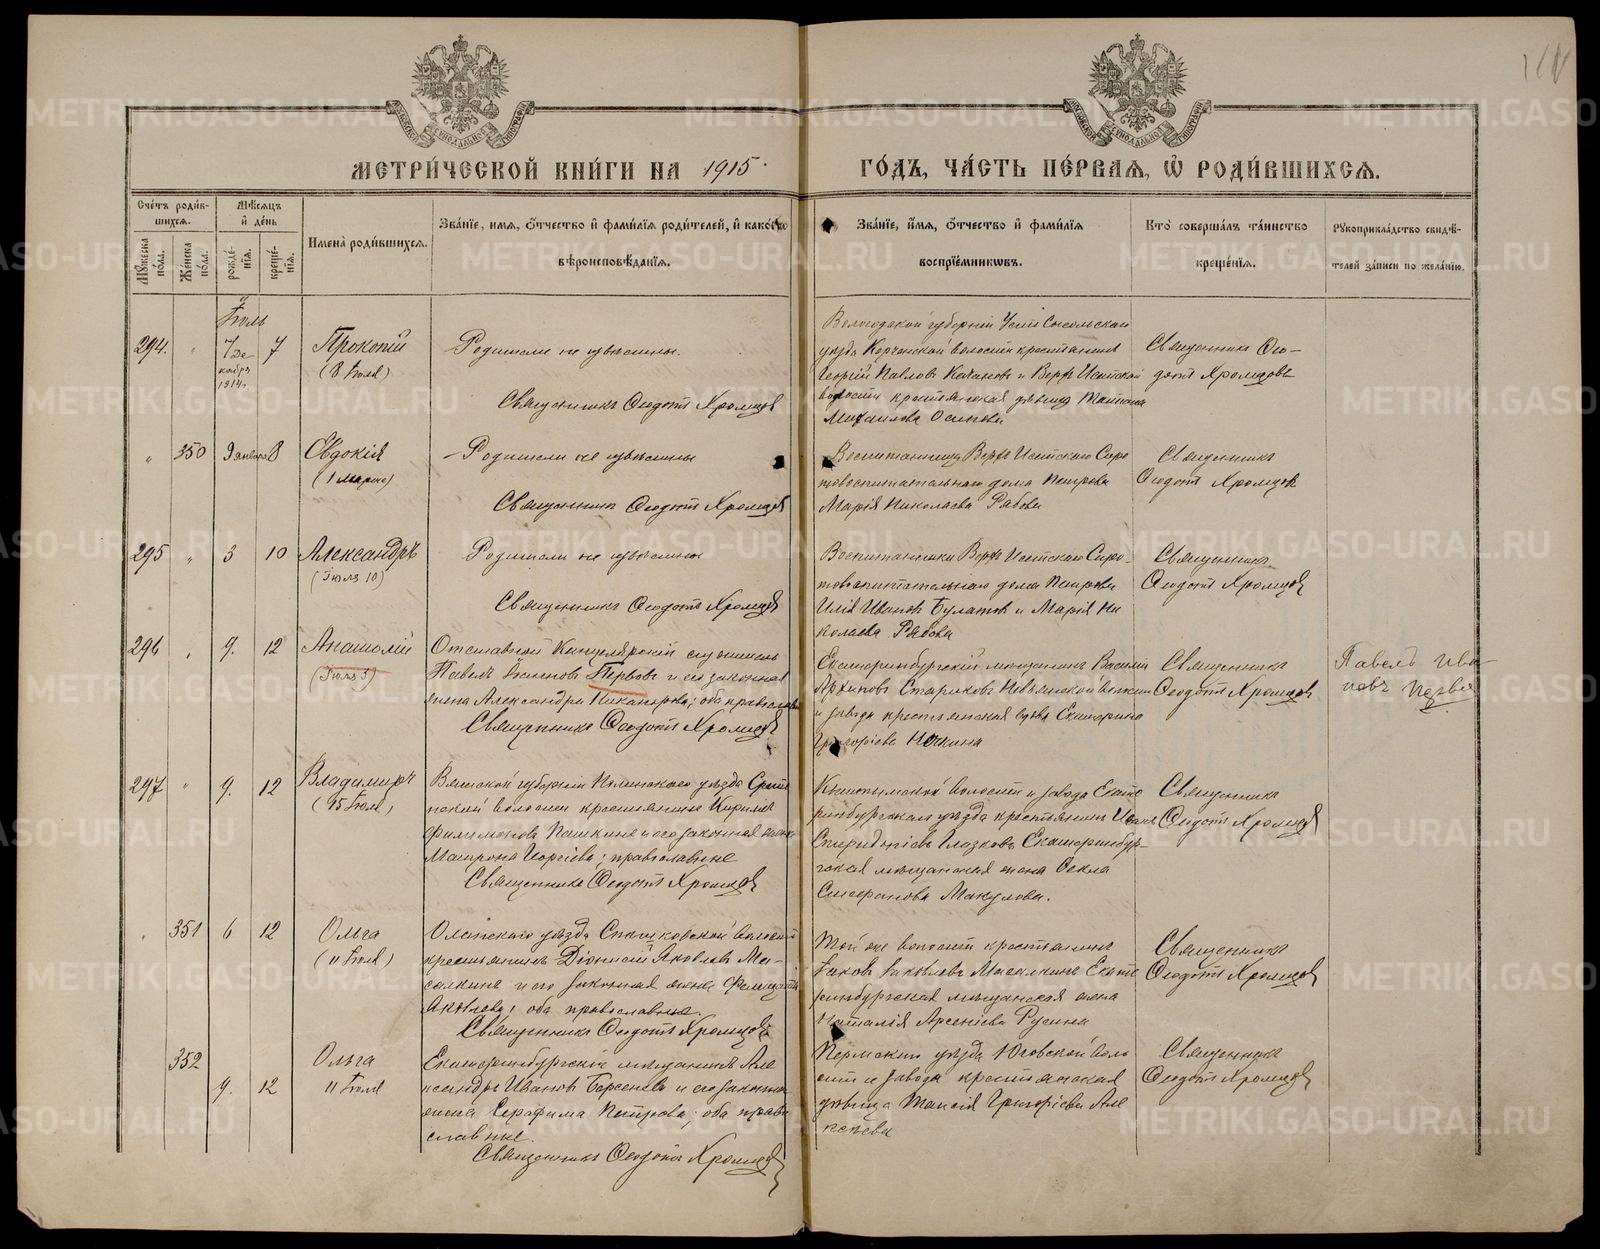 МЕТРИ́ЧЕСКОЙ КНИ́ГИ НА 1915
ГО́ДЪ, ЧА́СТЬ ПЕ́РВАЯ, Ѡ РОДИ́ВШИХСЯ.
Сче́тъ роди́в-
шихся.
Мꙋ́жеска по́ла.
Же́нска по́ла.
Мѣ́сяцъ
и́ де́нь
рожде́-
нїя.
креще́-
нїя.
Имена̀ роди́вшихся.
Зва́нїе, имя, о́тчество и́ фами́лїя роди́телей, и́ како́гѡ
вѣроисповѣ́данїя.
Зва́нїе, и́мя, о́тчество и́ фами́лїя
воспрїе́мникѡвъ.
Кто̀ соверша́лъ та́инство
креще́нїя.
Рꙋкоприкла́дство свидѣ́-
телей за́писи по жела́нїю.
Іюль
294. „ 7 Де 7 Прокопій
кабр
1914 г.
(8 Іюля)
Родители не извѣстны.
Священникъ Ѳеодотъ Хромцовъ
Вологодской губерніи Усть Сысольскаго
уѣзда волости крестьянинъ
Георгій Павловъ и Верхъ Исетской
волости крестьянская дѣвица Татьяна
Михаилова Осипова
Священникъ Ѳео-
дотъ Хромцовъ
„ 350 9 января 8 Евдокія
(1 марта)
Родители не извѣстны
Священникъ Ѳеодотъ Хромцовъ
Воспитанница Верхъ Исетскаго Сиро
товоспитательнаго дома Петрова
Марія Николаева Рябова
Священникъ
Ѳеодотъ Хромцовъ
295 „ 3 10 Александръ
(Іюля 10)
Родители не извѣстны
Священникъ Ѳеодотъ Хромцовъ
Воспитанники Верхъ Исетскаго Сиро-
товоспитательнаго дома Петрова
Илія Ивановъ Булатовъ и Марія Ни
колаева Рябова
Священникъ
Ѳеодотъ Хромцовъ
296 „ 9. 12 Анатолій
(Іюля 3)
Отставной Канцелярскій служитель
Павелъ Ивановъ Первовъ и его законная
жена Александра Никанорова; оба православн
Священникъ Ѳеодотъ Хромцовъ
Екатеринбургскій мѣщанинъ Василій
Архиповъ Стариковъ Невьянской волости
и завода крестьянская вдова Екатерина
Григоріева
Священникъ
Ѳеодотъ Хромцовъ
Павелъ Ива-
новъ Первов
297 „ 9. 12 Владимиръ
(15 Іюля)
Вятской губерніи Нолинскаго уѣзда Срѣтен
ской волости крестьянинъ Кириллъ
Филимоновъ Пашкинъ и его законная жена
Матрона Георгіева; православные
Священникъ Ѳеодотъ Хромцовъ
Кыштымской волости и завода Екате
ринбургскаго уѣзда крестьянинъ Иванъ
Спиридоніевъ Глазковъ Екатеринбур-
гская мѣщанская жена Ѳекла
Стефанова Макулова.
Священникъ
Ѳеодотъ Хромцовъ
„ 351 6 12 Ольга
(11 Іюля)
уѣзда волости
крестьянинъ Діонисій Яковлевъ Ма-
салкинъ и его законная жена
Яковлева; оба православные.
Священникъ Ѳеодотъ Хромцовъ
Той же волости крестьянинъ
Іаковъ Іаковлевъ Масалкинъ Екате
ринбургская мѣщанская жена
Наталія Арсеніева Русина
Священникъ
Ѳеодотъ Хромцовъ
352 9. 12 Ольга
11 Іюля
Екатеринбургскій мѣщанинъ Але
ксандръ Ивановъ и его законная
жена Серафима Петрова; оба право
славные.
Священникъ Ѳеодотъ Хромцовъ
Пермскаго уѣзда Юговской воло
сти и завода крестьянская
дѣвица Таисія Григоріева Але
ксѣева
Священникъ
Ѳеодотъ Хромцовъ
METRIKI.GASO-URAL.RU